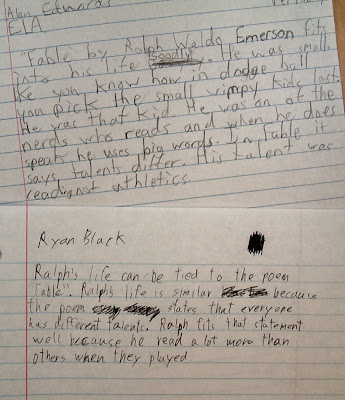 Alan Edwards
ELA
"Fable by Ralph Waldo Emerson fits
into his life. He was small.
Like you know how in dodge ball
you pick the small wimpy kids last.
He was that kid. He was on of the
nerds who reads and when he does
speak he uses big words. In Fable it
says talents differ. His talent was
reading not athletics.
Ryan Black
Ralph's life can be tied to the poem
"Fable". Ralph's life is similar because
the poem states that everyone
has different talents. Ralph fits that statement
well because he read a lot more than
others when they played